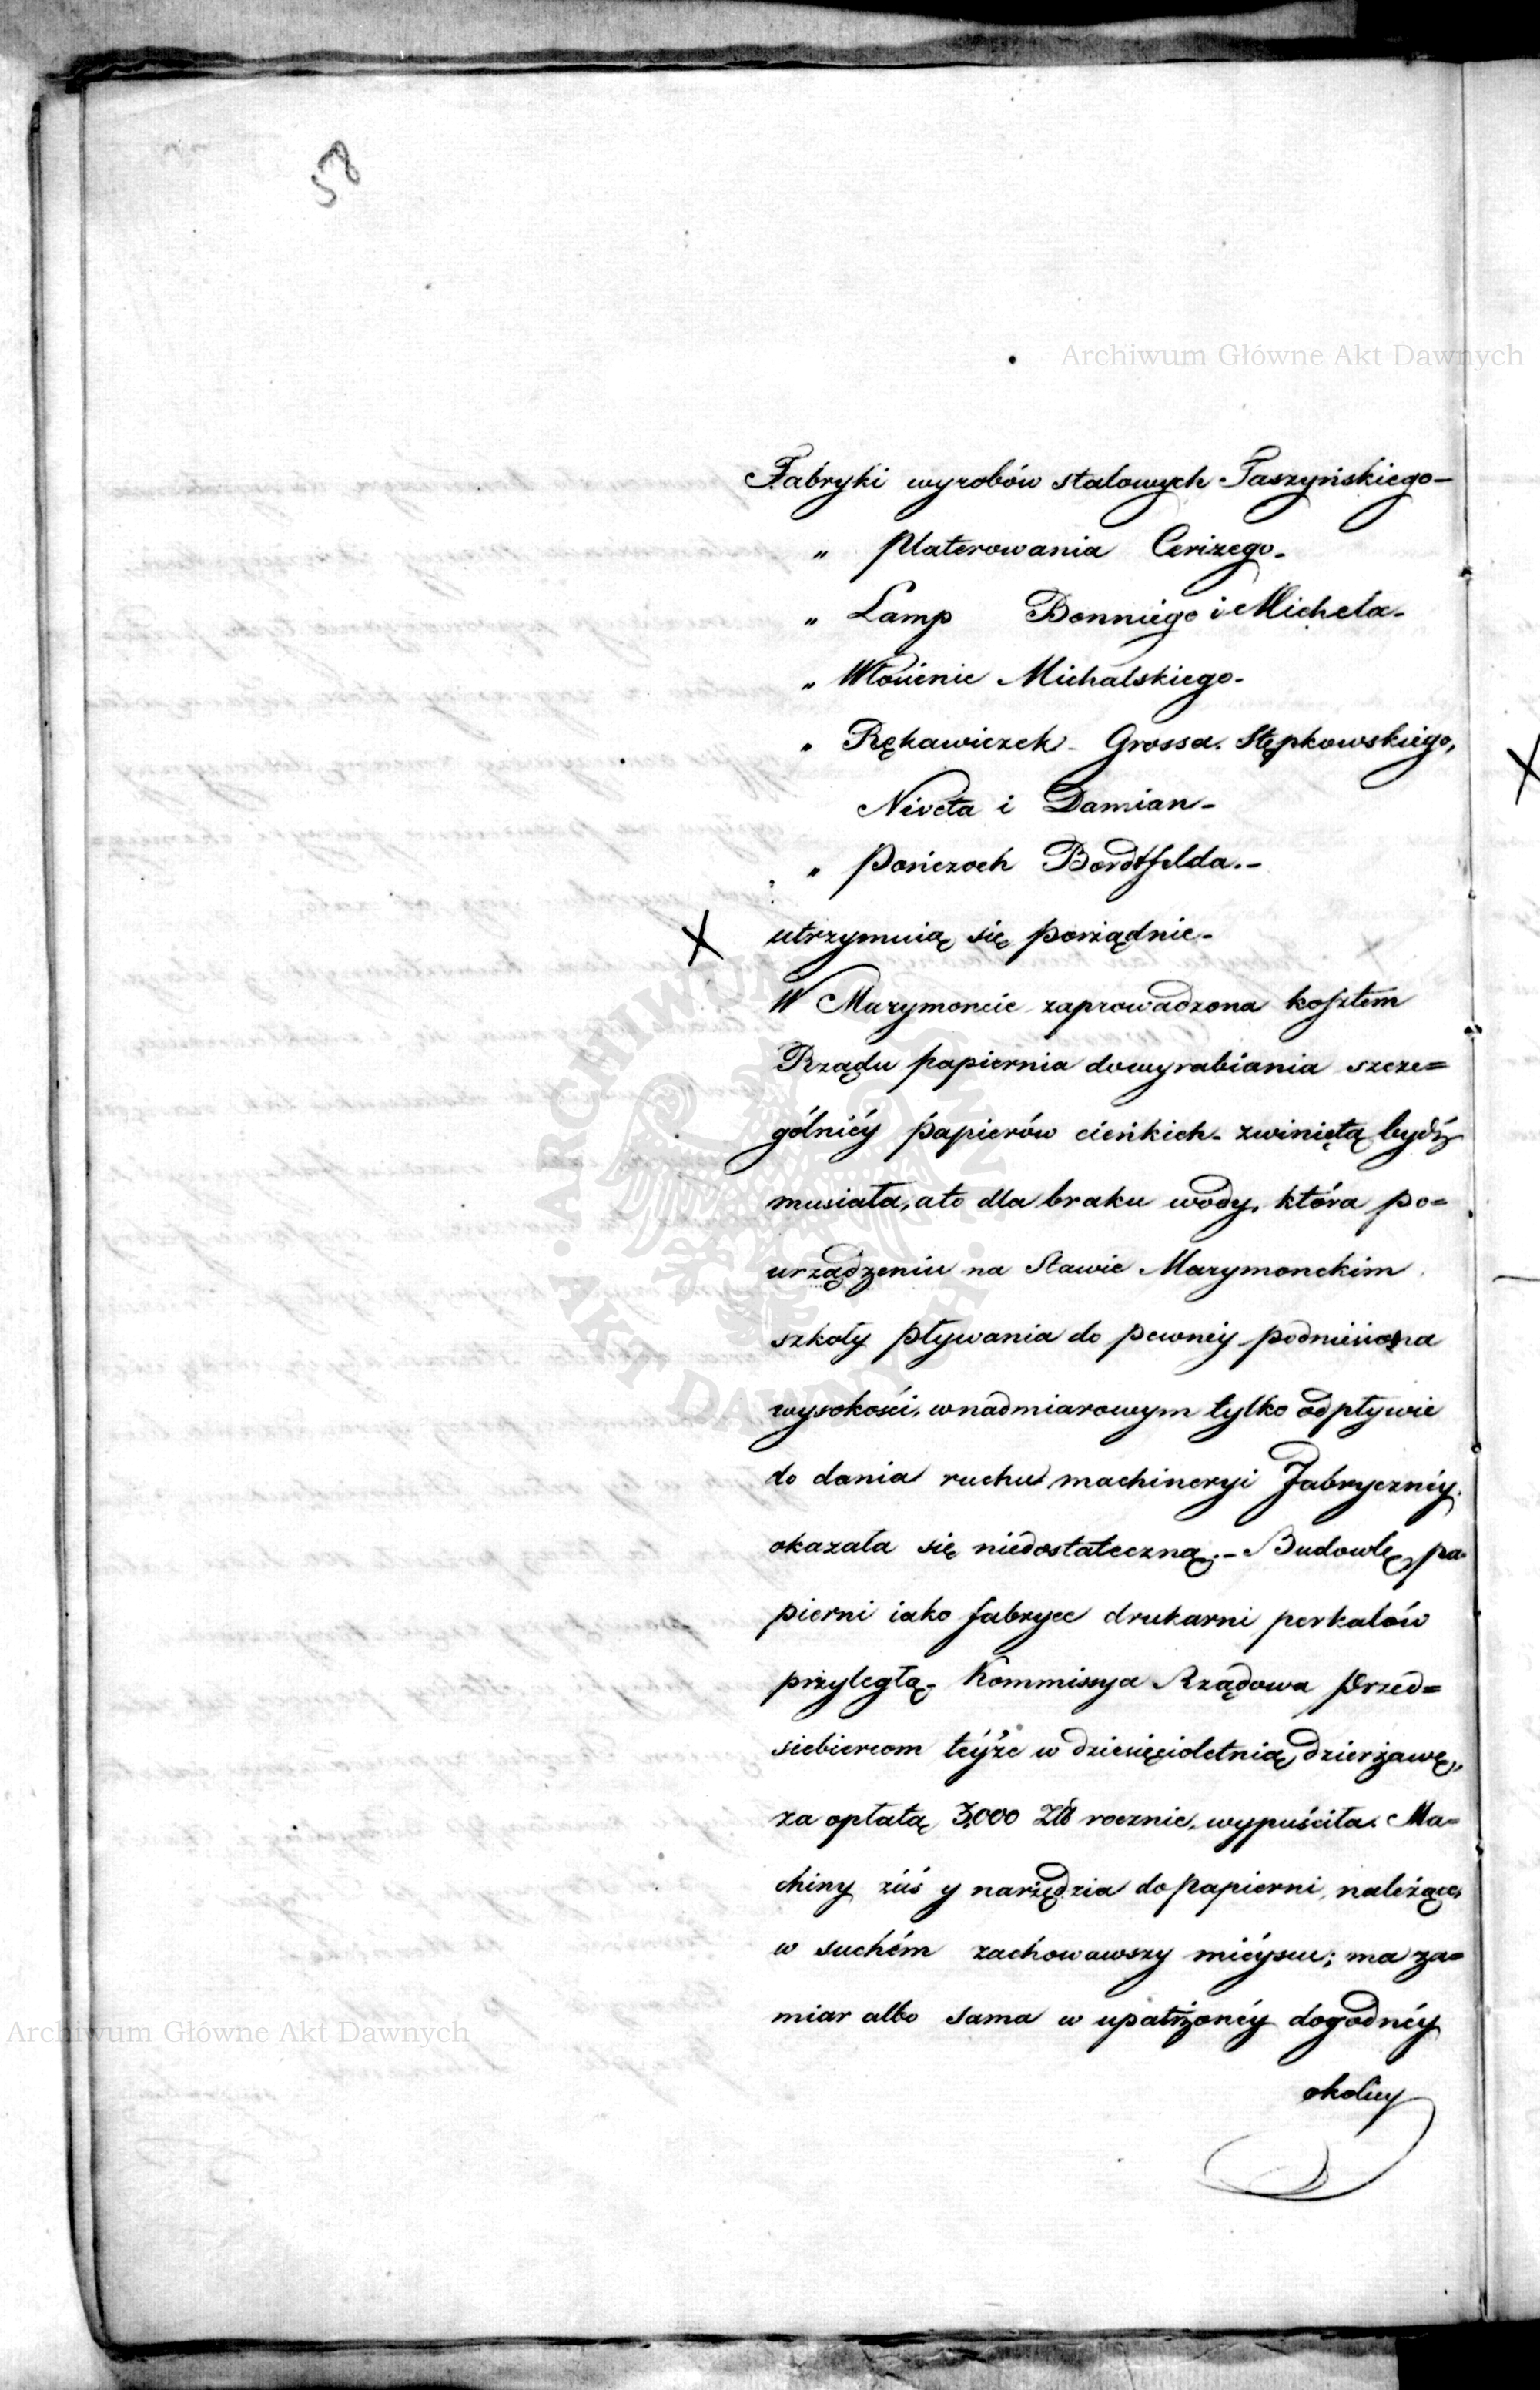 58
Archiwum Główne Akt Dawnych
Fabryki wyrobów stalowych Taszyńskiego -
" Platerowania Cerizego -
" Lamp Bonniego i Michela -
" Włosienie Michalskiego -
" Rękawiczek - Grossa. Stępkowskiego,
Niveta i Damian -
" Pończoch Bordtfelda. -
X utrzymuią się porządnie -
W Marymoncie zaprowadzona kosztem
Rządu papiernia do wyrabiania szcze=
gólniéy papierów cieńkich - zwiniętą bydź
musiała, a to dla braku wody, która po=
urządzeniu na Stawie Marymonckim
szkoły pływania do pewnéy podniesiona
wysokości, w nadmiarowym tylko odpływie
do dania ruchu machineryi Fabrycznéy.
okazała się niedostateczną. - Budowlę pa=
pierni iako fabryce drukarni perkalów
przyległą - Kommissya Rządowa Przed=
siebiercom teyże w dziesięcioletnią dzierżawę,
za opłatą 3,000 Złt rocznie, wypuściła. Ma=
chiny zaś y narzędzia do papierni, należące,
w suchém zachowawszy mieyscu; ma za=
miar albo sama w upatrzonéy dogodnéy
okolicy
Archiwum Główne Akt Dawnych
ARCHIWUM GŁÓWNE · AKT DAWNYCH ·